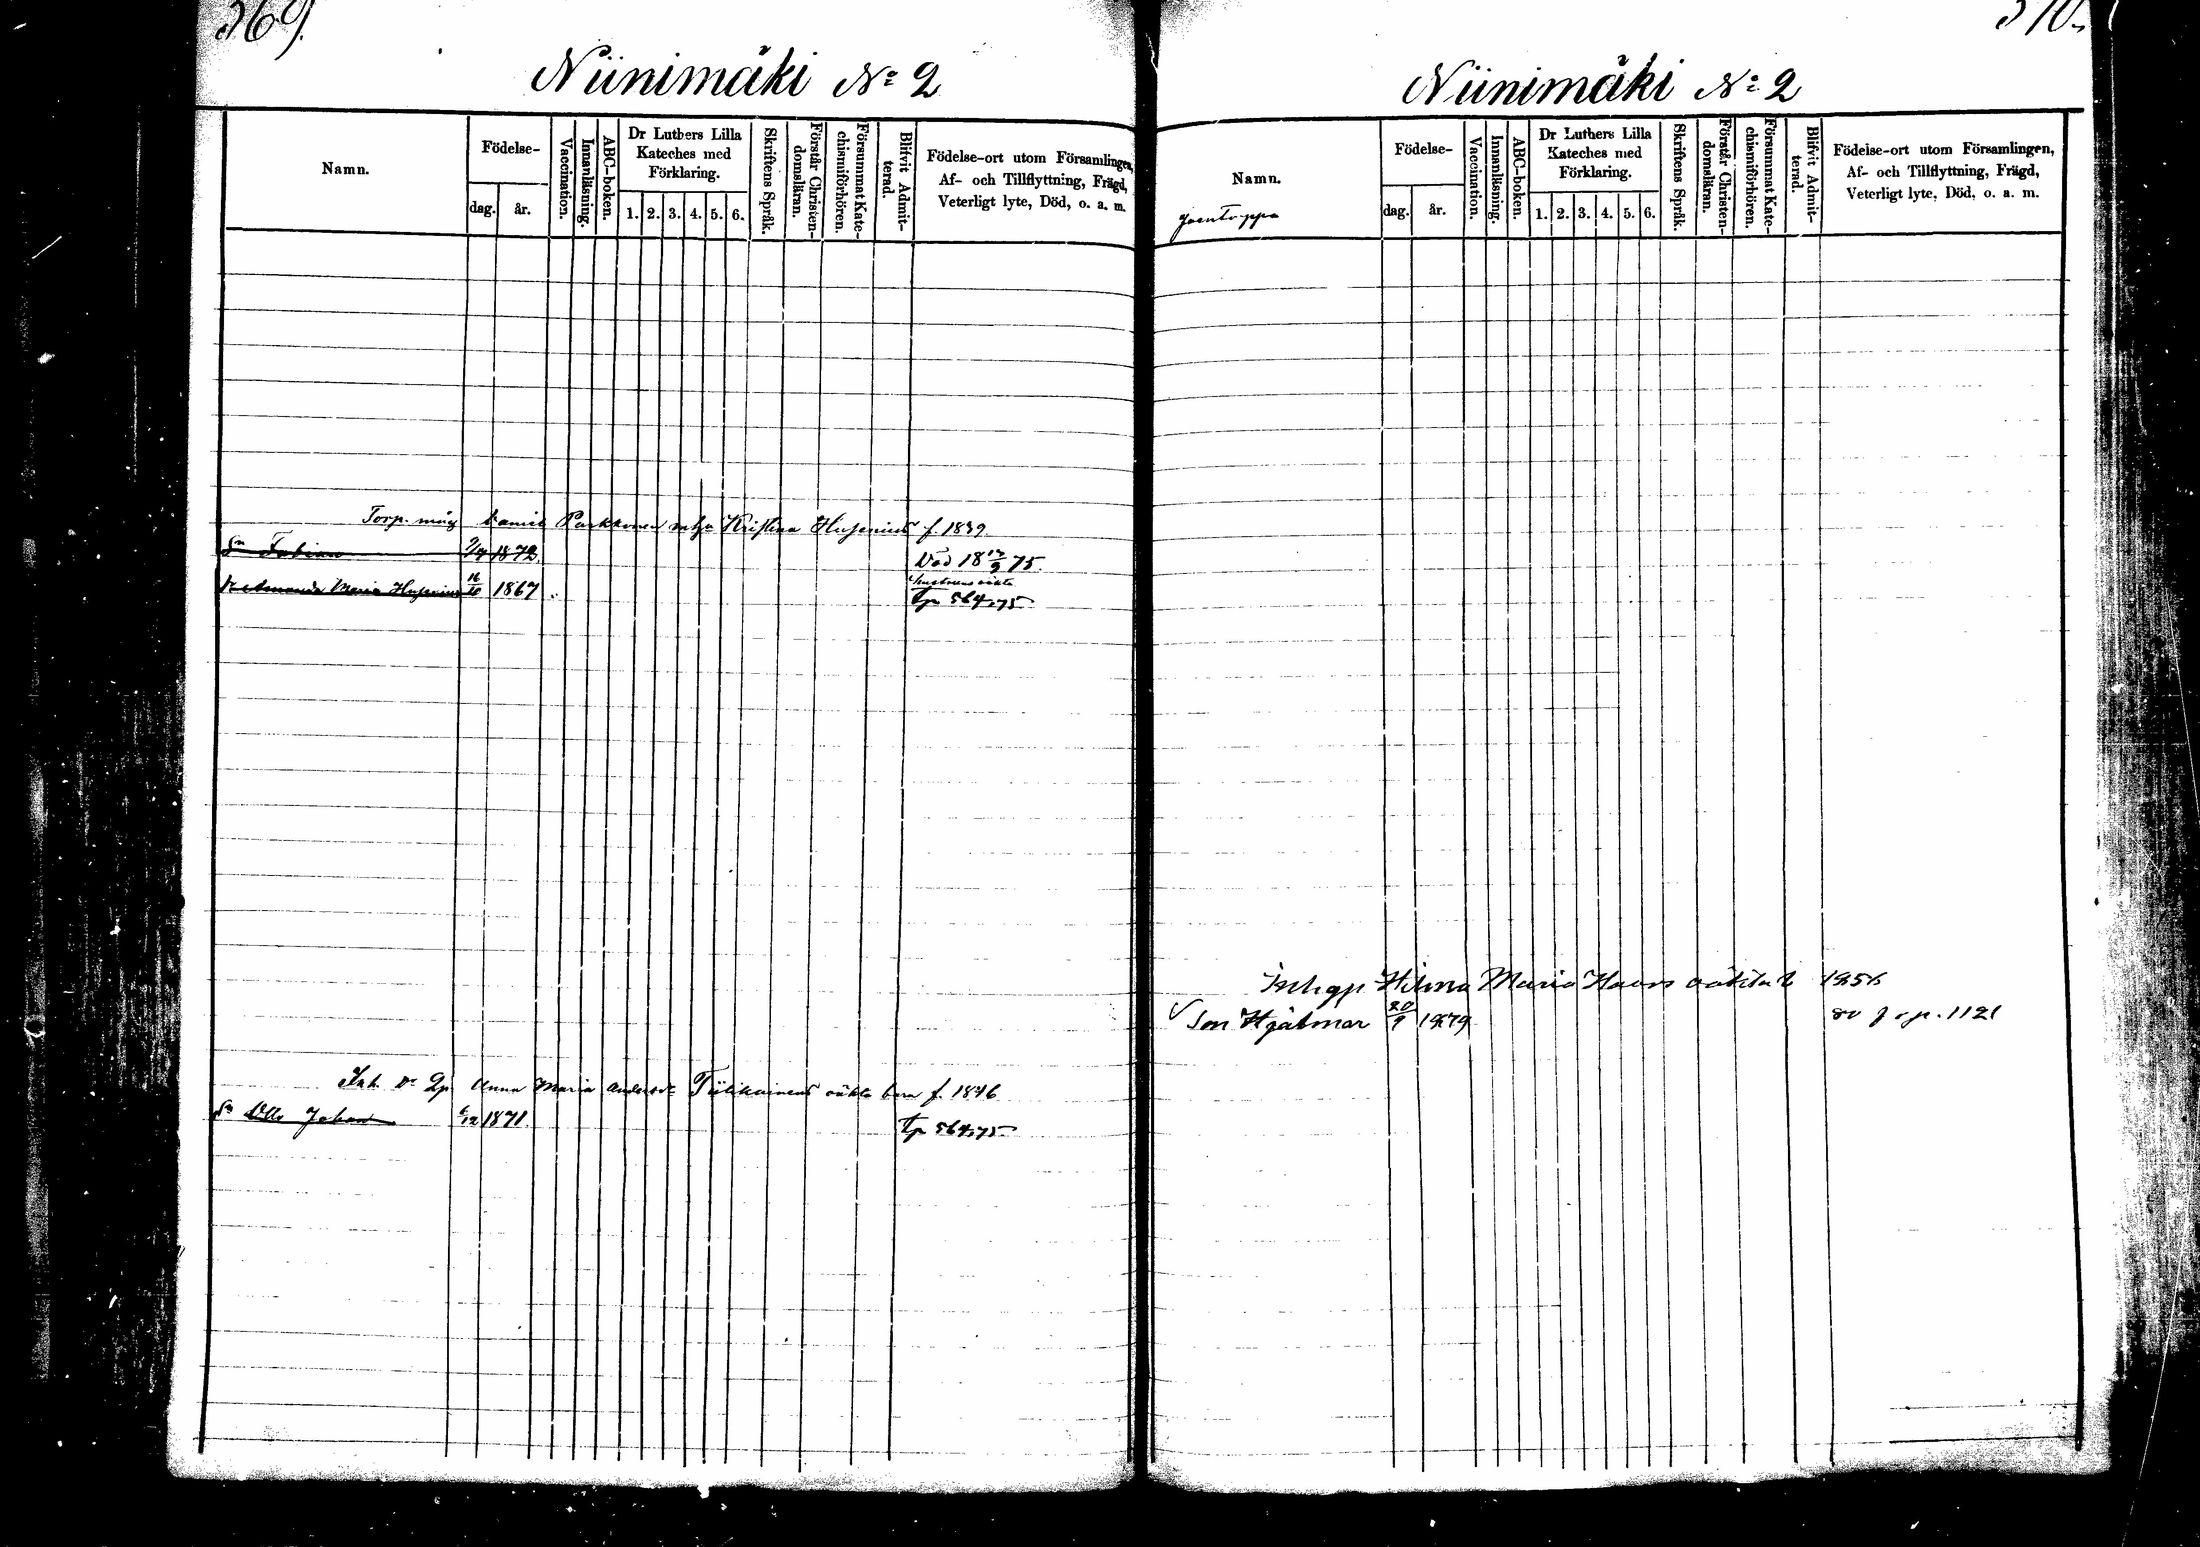 369.
Niinimäki No 2
Namn.
Födelse-
dag.
år.
Vaccination.
Innanläsning.
ABC-boken.
Dr Luthers Lilla
Kateches med
Förklaring.
1. 2. 3. 4. 5. 6.
Skriftens Språk.
Förstår Christen-
domsläran.
Försummat Kate-
chismiförhören.
Blifvit Admit-
terad.
Födelse-ort utom Församlingen,
Af- och Tillflyttning, Frägd,
Veterligt lyte, Död, o. a. m.
Torp. måg Daniel Parkkonen Kristina Husenius f 1839.
Sn Fabian 1872. Död 18 17/9 75.
Maria Husenius 16/10 1867 Hustruns oäkta
Tp 564.75
Inh. Dr Qp Anna Maria Tiilikainens oäkta barn f. 1846
Sn Olli Johan 6/12 1871 Tp 564.75
370.
Niinimäki No 2
Namn.
Födelse-
dag.
år.
Vaccination.
Innanläsning.
ABC-boken.
Dr Luthers Lilla
Kateches med
Förklaring.
1. 2. 3. 4. 5. 6.
Skriftens Språk.
Förstår Christen-
domsläran.
Försummat Kate-
chismiförhören.
Blifvit Admit-
terad.
Födelse-ort utom Församlingen,
Af- och Tillflyttning, Frägd,
Veterligt lyte, Död, o. a. m.
Hilma Maria oäkta b 1856
Son Hjalmar 20/9 1879 p. 1121